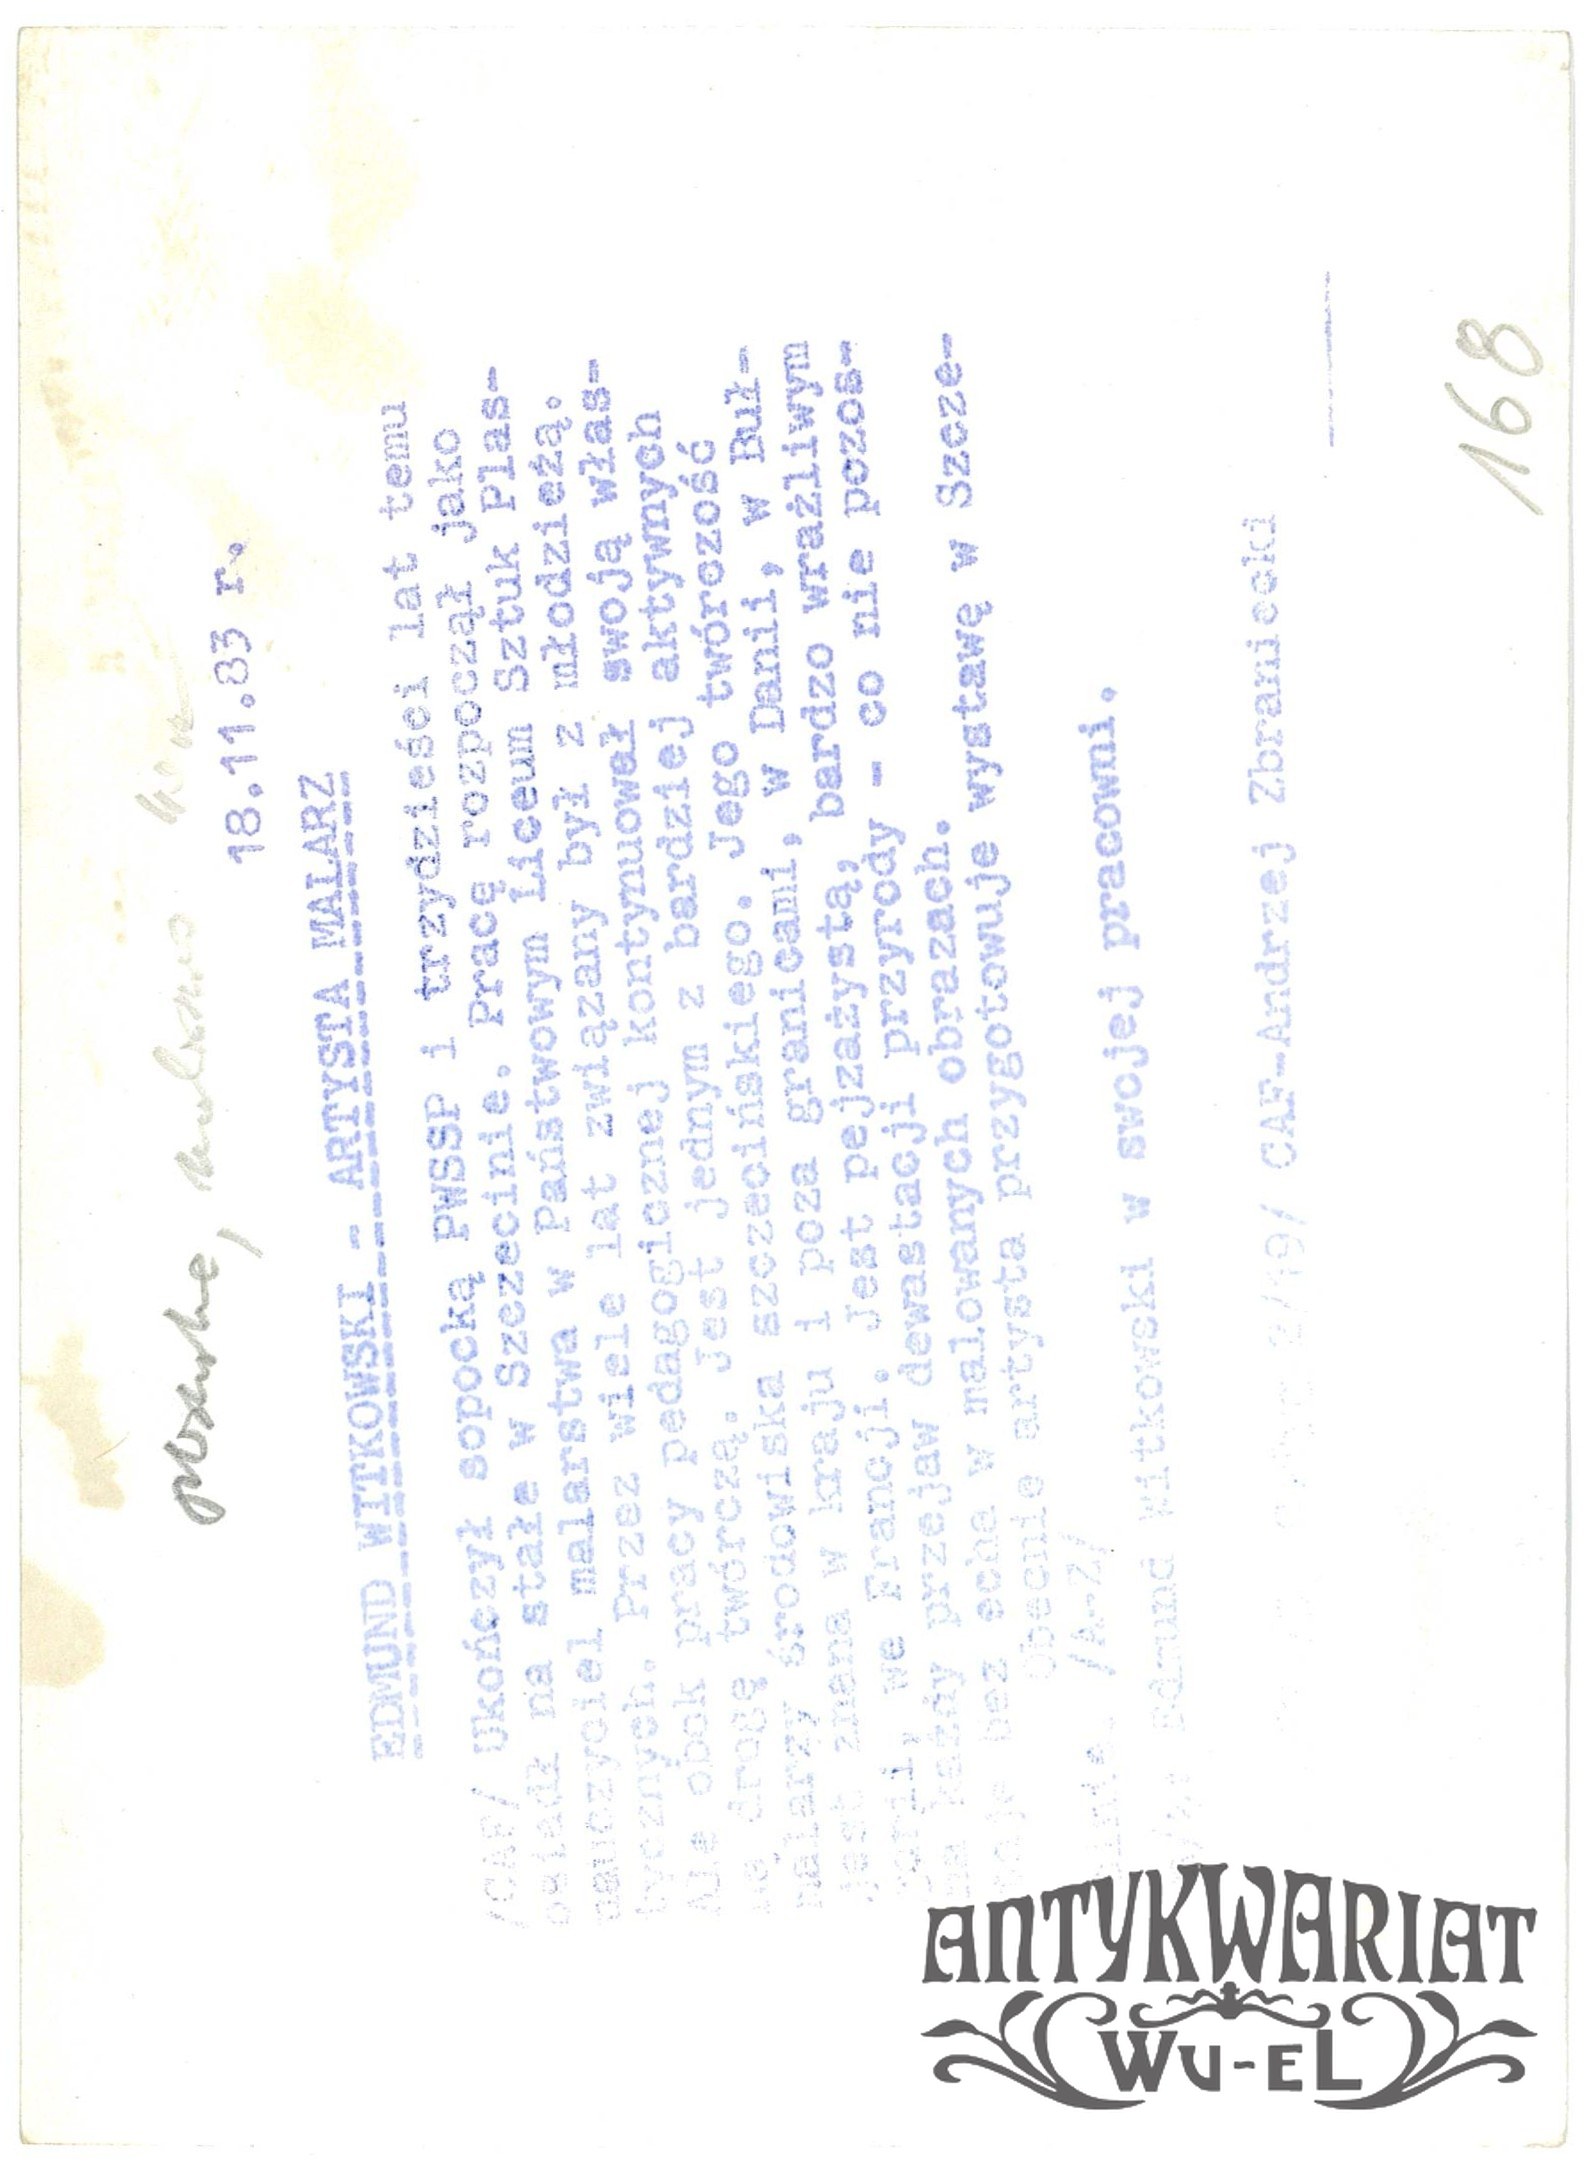 18.11.83 r.
EDMUND WITKOWSKI - ARTYSTA MALARZ
/CAF/ Ukończył sopocką PWSSP i trzydzieści lat temu
osiadł na stałe w Szczecinie. Pracę rozpoczął jako
nauczyciel malarstwa w Państwowym Liceum Sztuk Plas-
tycznych. Przez wiele lat związany był z młodzieżą.
Ale obok pracy pedagogicznej kontynuował swoją włas-
ną drogę twórczą. Jest jednym z bardziej aktywnych
malarzy środowiska szczecińskiego. Jego twórczość
jest znana w kraju i poza granicami, w Danii, w Buł-
garii, we Francji. Jest pejzażystą, bardzo wrażliwym
na każdy przejaw dewastacji przyrody - co nie pozos-
taje bez echa w malowanych obrazach.
Obecnie artysta przygotowuje wystawę w Szcze-
cinie. /A-Z/
Edmund Witkowski w swojej pracowni.
CAF-Andrzej Zbraniecki
168
ANTYKWARIAT
WU-EL